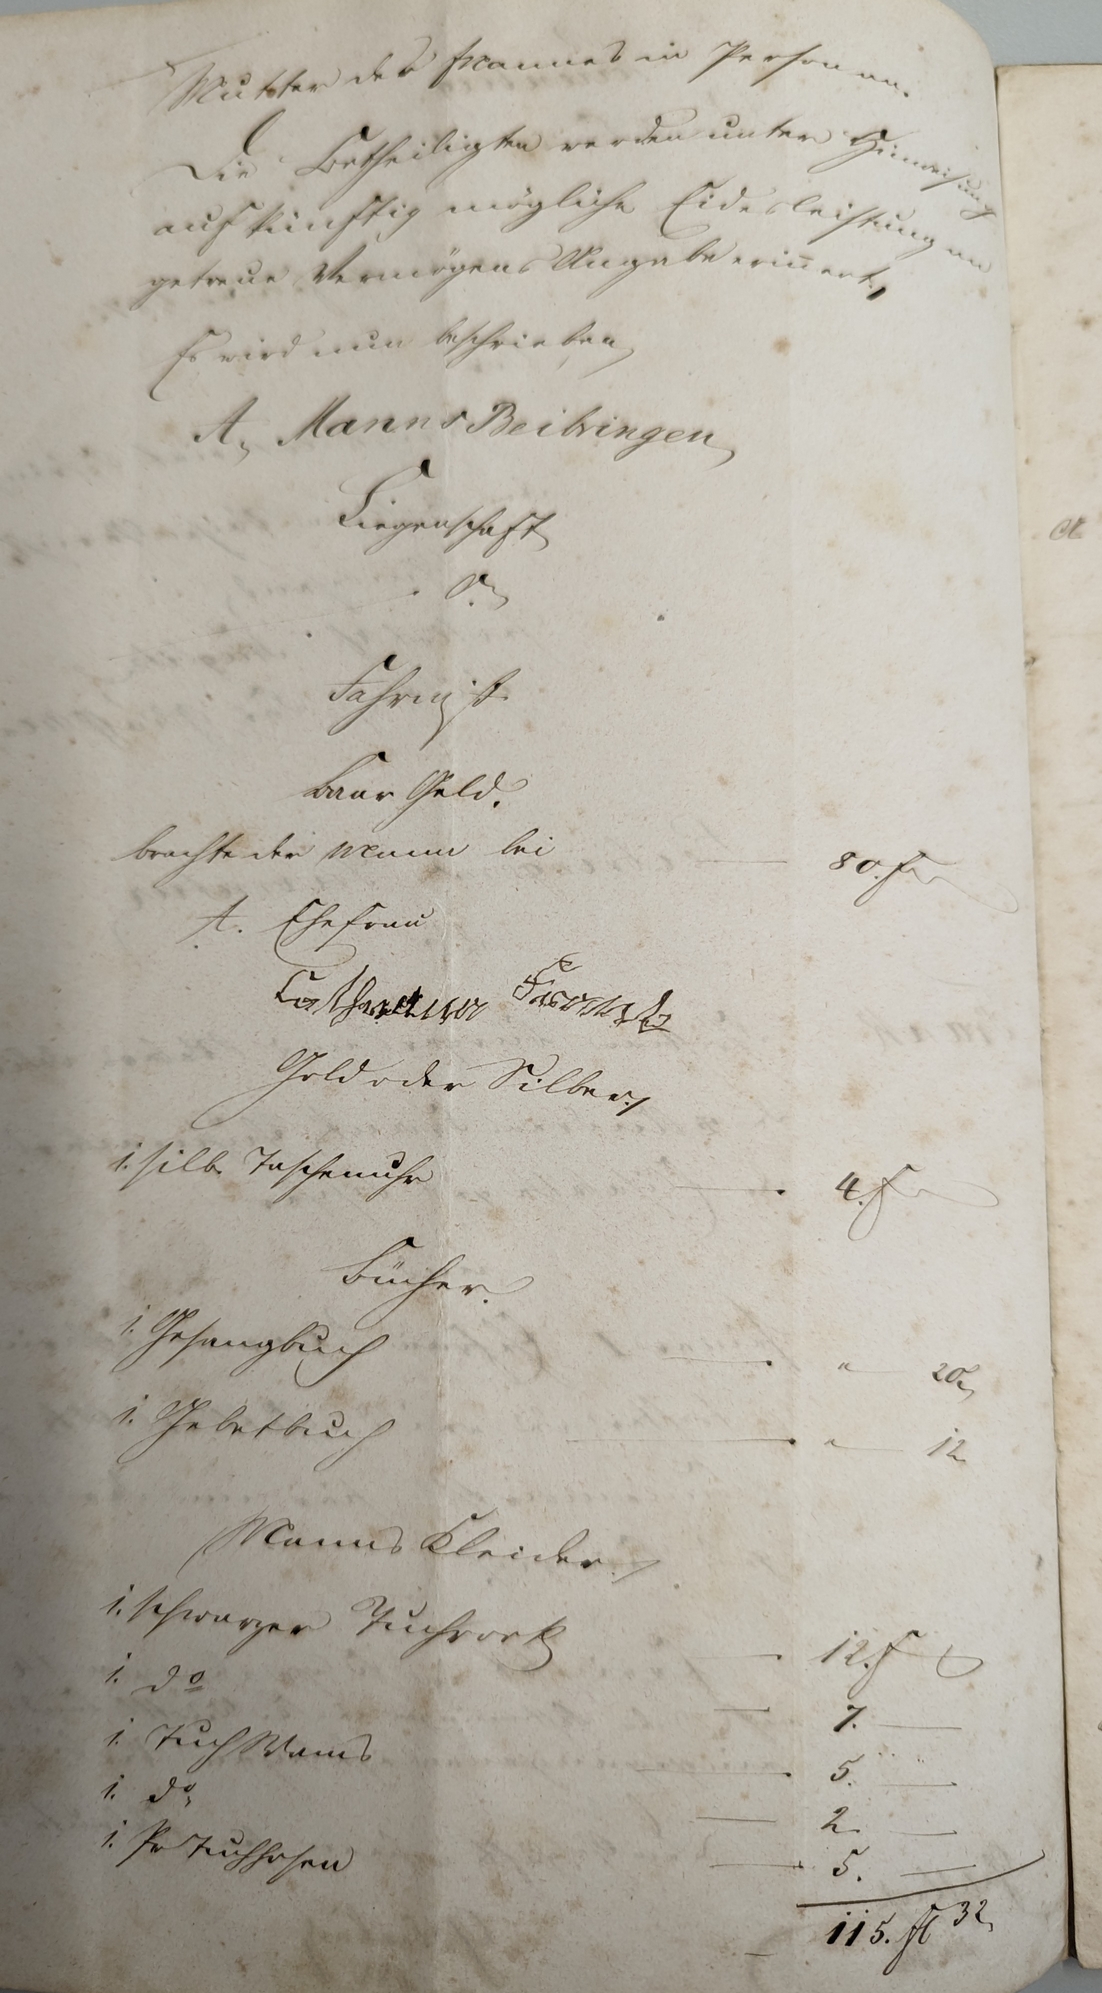 Mutter des Mannes in Person an.
Die Betheiligten werden unter Hinweisung
auf künftig mögliche Eidesleistung an
getreue Vermögens Angabe erinnert,
Es wird nun beschrieben,
A, Manns Beibringen,
Liegenschaft
0.
Fahrniß
Baar Geld.
brachte der Mann bei — 80. f
A. Ehefrau
Catharina
Gold oder Silber,
1. silb. Taschenuhr — 4. f
Bücher.
1. Gesangbuch — " — 20,
1. Gebetbuch — " — 12
Manns Kleider.
1. schwarzer Tuchrock — 12. f
1. do — 7. —
1. Tuch Wams — 5. —
1. do — 2. —
1. Pr Tuchhosen — 5. —
115. fl 32,